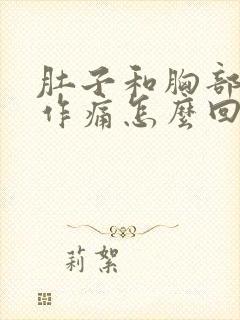 肚子和胸部
作痛怎麼回
莉絮